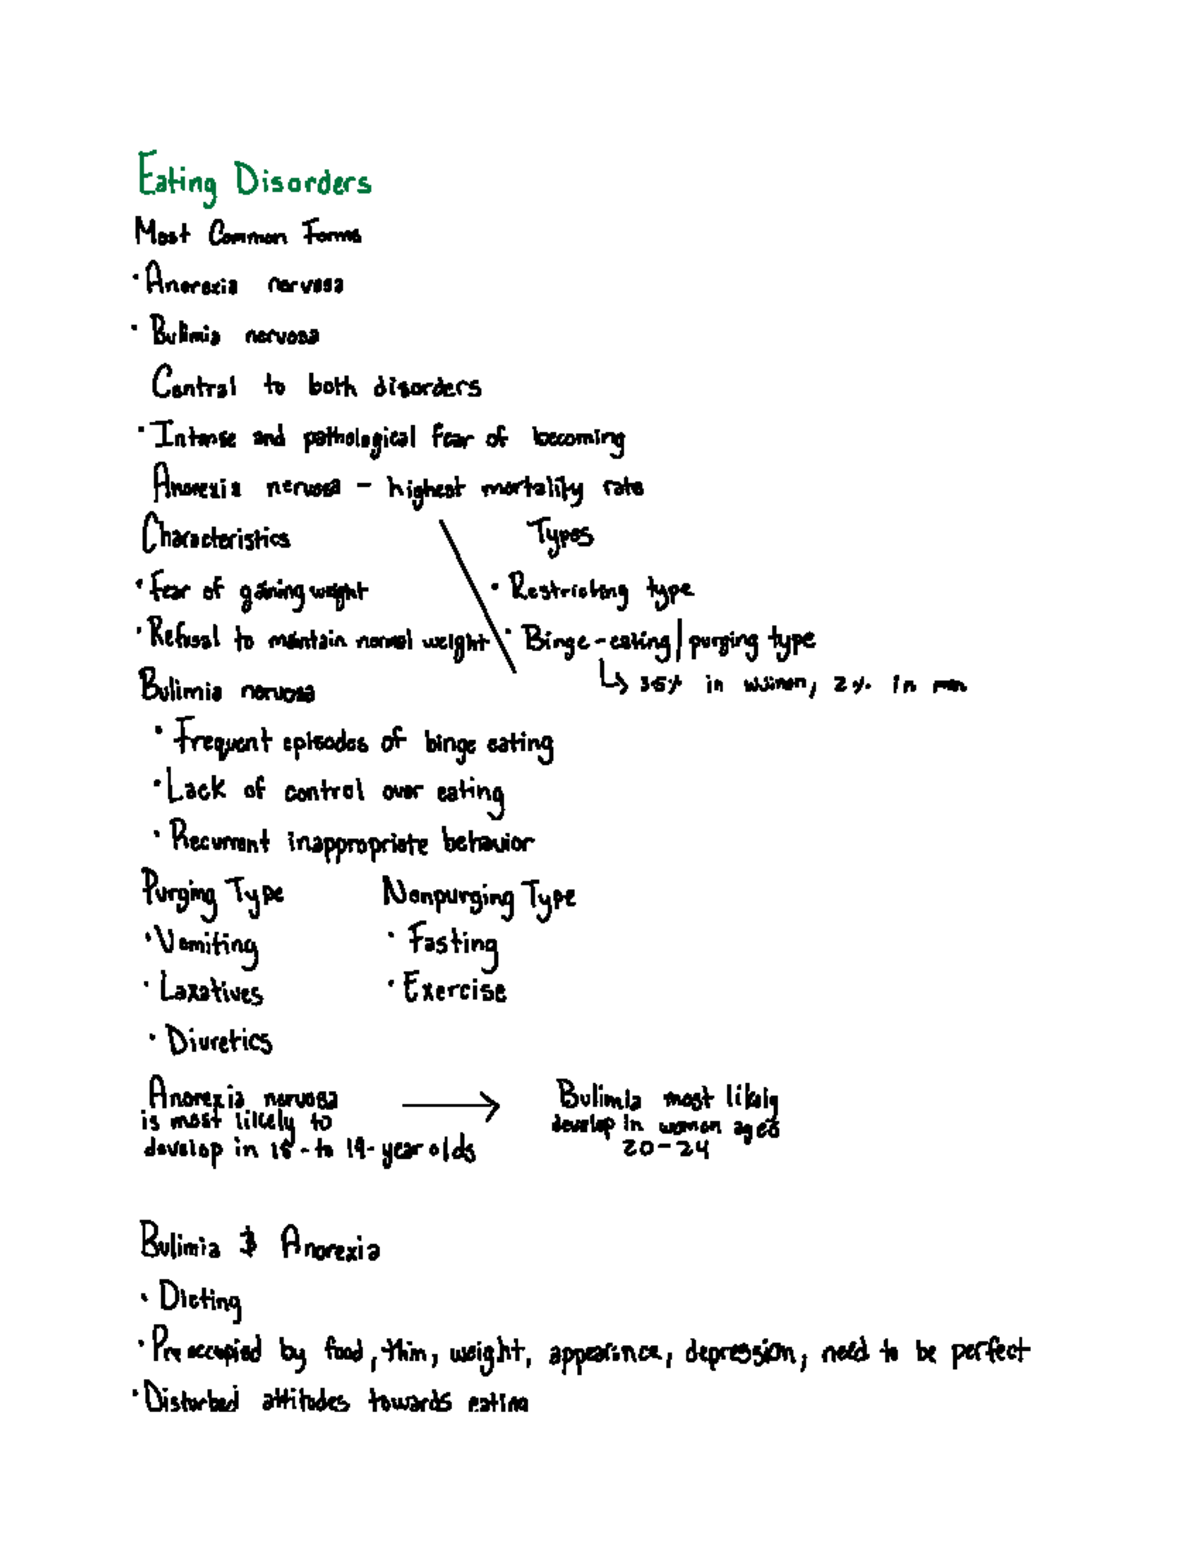 Eating Disorders
Most Common Forms
· Anorexia nervosa
· Bulimia nervosa
Central to both disorders
· Intense and pathological fear of becoming
Anorexia nervosa - highest mortality rate
Characteristics Types
· Fear of gaining weight · Restricting type
· Refusal to maintain normal weight · Binge-eating/purging type
↳ 3.5% in women, 2% in men
Bulimia nervosa
· Frequent episodes of binge eating
· Lack of control over eating
· Recurrent inappropriate behavior
Purging Type Nonpurging Type
· Vomiting · Fasting
· Laxatives · Exercise
· Diuretics
Anorexia nervosa → Bulimia most likely
is most likely to develop in women ages
develop in 15-to 19-year olds 20-24
Bulimia & Anorexia
· Dieting
· Preoccupied by food, thin, weight, appearince, depression, need to be perfect
· Disturbed attitudes towards eating